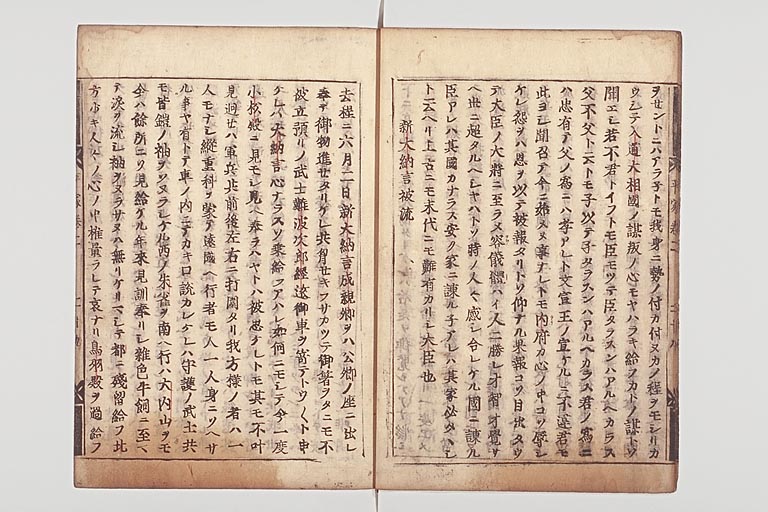 ヲサントニハアラテトモ我身ニ勢ノ付カ付スカノ程ヲモシリカ
ウシテ入道大相國ノ謀叛ノ心モヤハラキ給フカトノ謀トソ
聞エシ若不君トイフトモ臣モツテ臣タラスンハアルヘカラス
父不父ト云トモ子以テ子タラスンハアルヘカラス君ノ爲ニ
ハ忠有テ父ノ爲ニハ孝アレト文宣王ノ宣ケルニ不違君モ
此ヨシ聞召テ今ニ始ヌ事ナレトモ内府カ心ノ中コソ
ケレ怨ヲハ恩ヲ以テ被報タリトソ仰ケル果報コソ目出タウ
テ大臣ノ大將ニ至ラメ容儀 人ニ勝レ才智才覺サ
ヘ世ニ超タルヘシヤハトソ時ノ人々感シ合レケル國ニ諫ル
臣アレハ其國カナラス安ク家ニ諫ル子アレハ其家必タヽシ
ト云ヘリ上古ニモ末代ニモ難有カリシ大臣也
新大納言被流
去程ニ六月二日新大納言成親卿ヲハ公卿ノ座ニ出シ
奉テ御物進セタリケレ共胸セキフサカツテ御箸ヲタニモ不
被立預リノ武士難波次郎經遠御車ヲ寄テトウ〱ト申
ケレハ大納言心ナラスソ乗給フアハレ如何ニモシテ今一度
小松殿ニ見モシ見ヘ奉ラハヤトハ被思ケレトモ其モ不叶
見廻セハ軍兵共前後左右ニ打圍タリ我方樣ノ者ハ一
人モナシ縱重科ヲ蒙テ遠國ヘ行者モ人一人身ニソヘサ
ル事ヤ有トテ車ノ内ニテカキ口説カレケレハ守護ノ武士共
モ皆鎧ノ袖ヲソヌラシケル西ノ朱雀ヲ南ヘ行ハ大内山ヲモ
今ハ餘所ニソ見給ケル年來見訓奉リシ雜色牛飼ニ至マ
テ涙ヲ流シ袖ヲヌラサヌハ無リケリマシテ都ニ殘留給フ北
方少キ人々ノ心ノ中推量ラレテ哀ナリ鳥羽殿ヲ過給フ